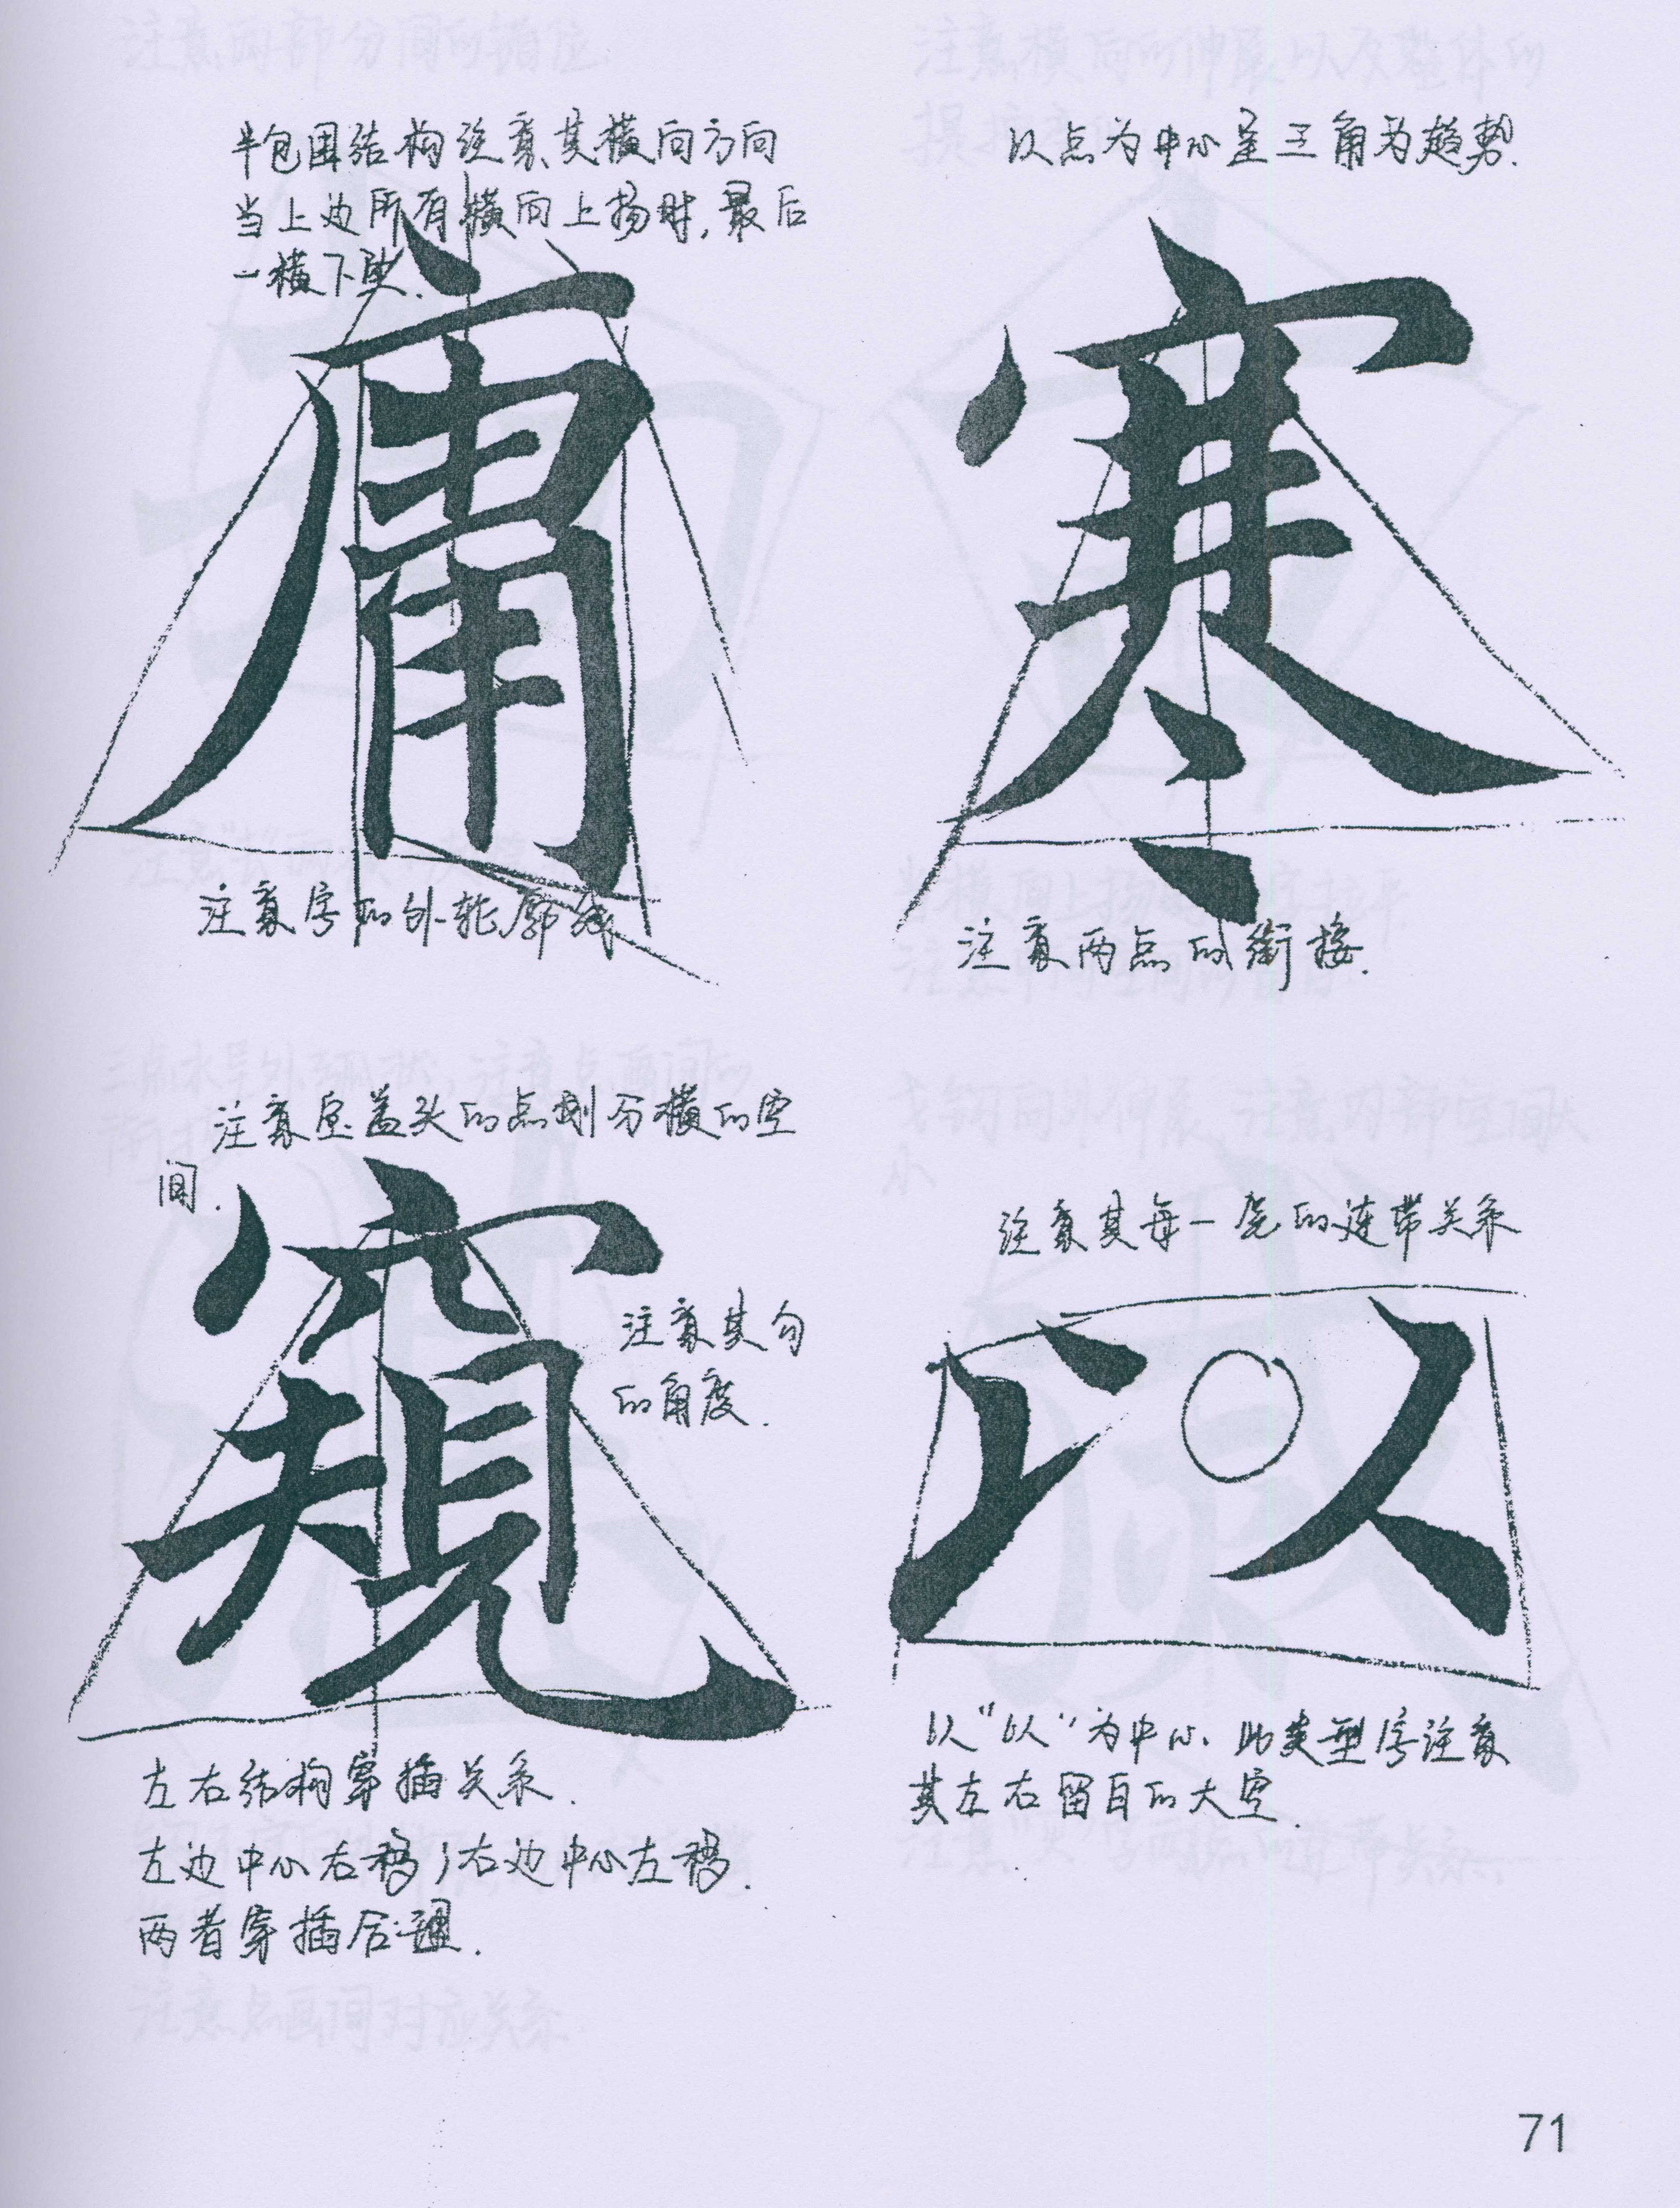 半包围结构注意其横向方向
当上边所有横向上扬时,最后
一横下坠.
庸
注意字的外轮廓线
以点为中心呈三角为趋势.
寒
注意两点的衔接.
注意宝盖头的点划分横的空
间.
窥
注意其勾
的角度.
左右结构穿插关系.
左边中心右移,右边中心左移.
两者穿插合理.
注意其每一笔的连带关系
以
以“以”为中心.此类型字注意
其左右留白的大空.
71